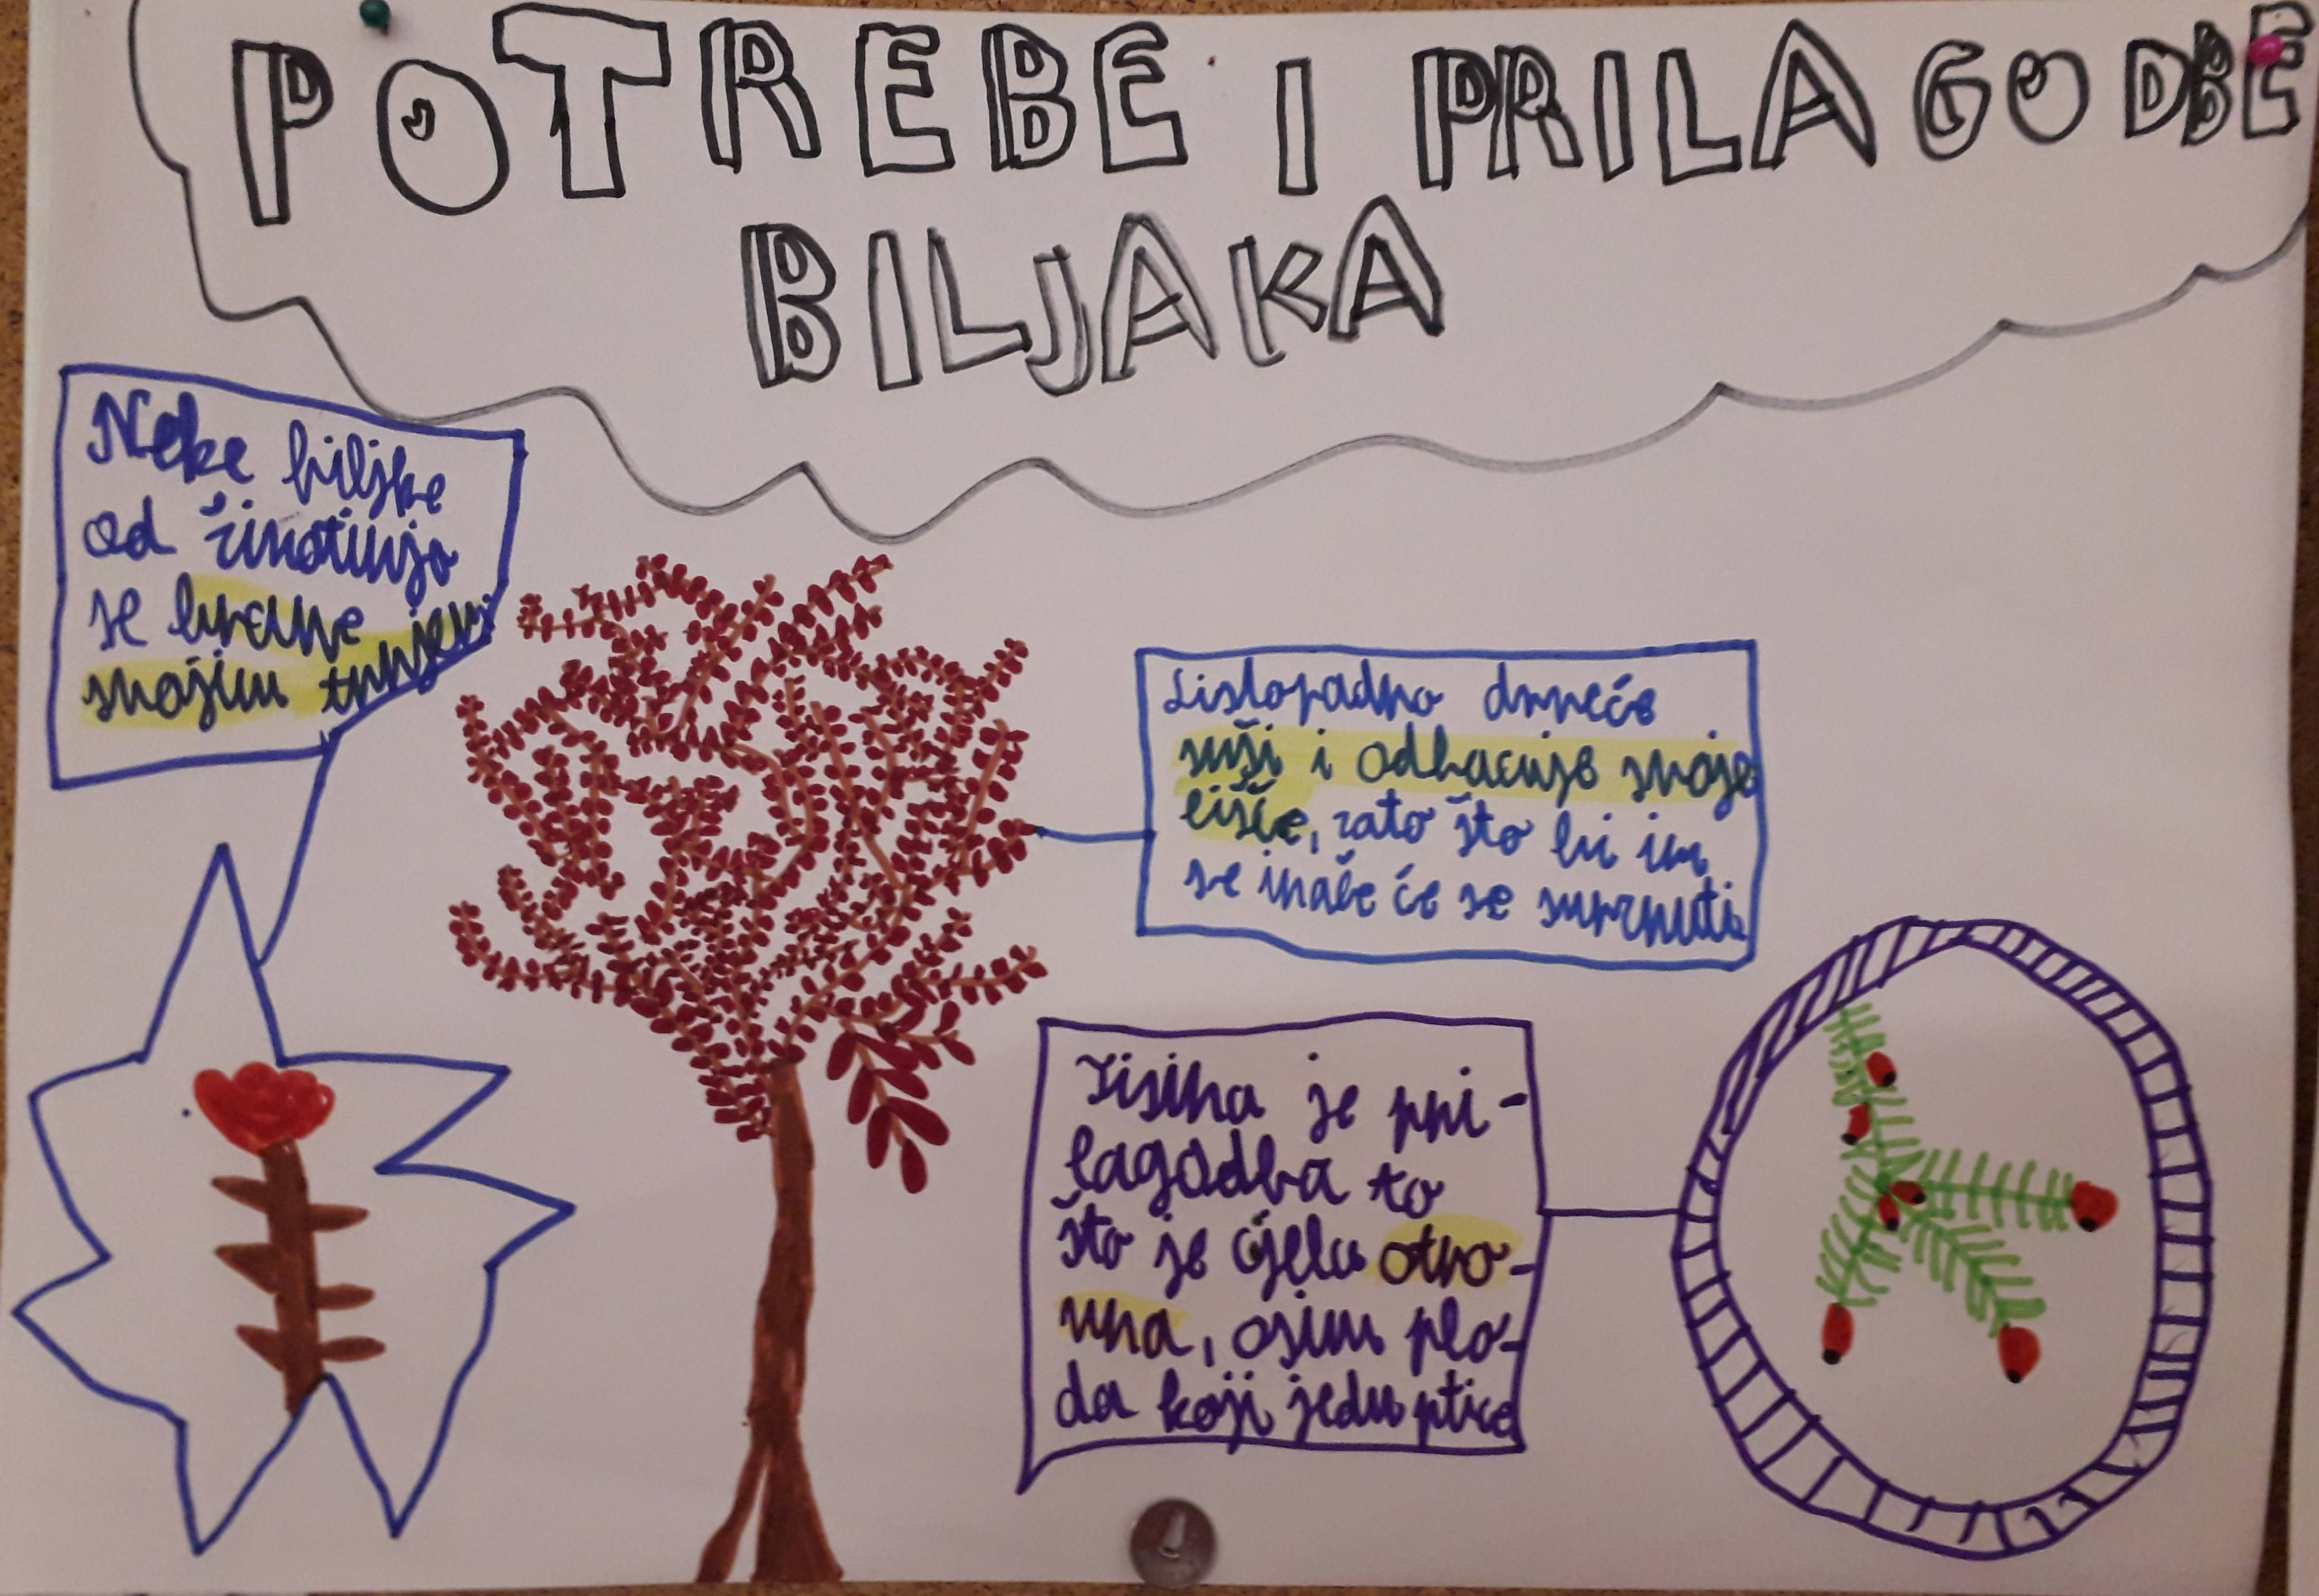 POTREBE I PRILAGODBE
BILJAKA
Neke biljke
od životinja
se brane
svojim trnjem
Listopadno drveće
suši i odbacuje svoje
lišće, zato što bi im
se inače će se smrznuti
Tisina je pri-
lagodba to
što je cijela otro-
vna, osim plo-
da koji jedu ptice